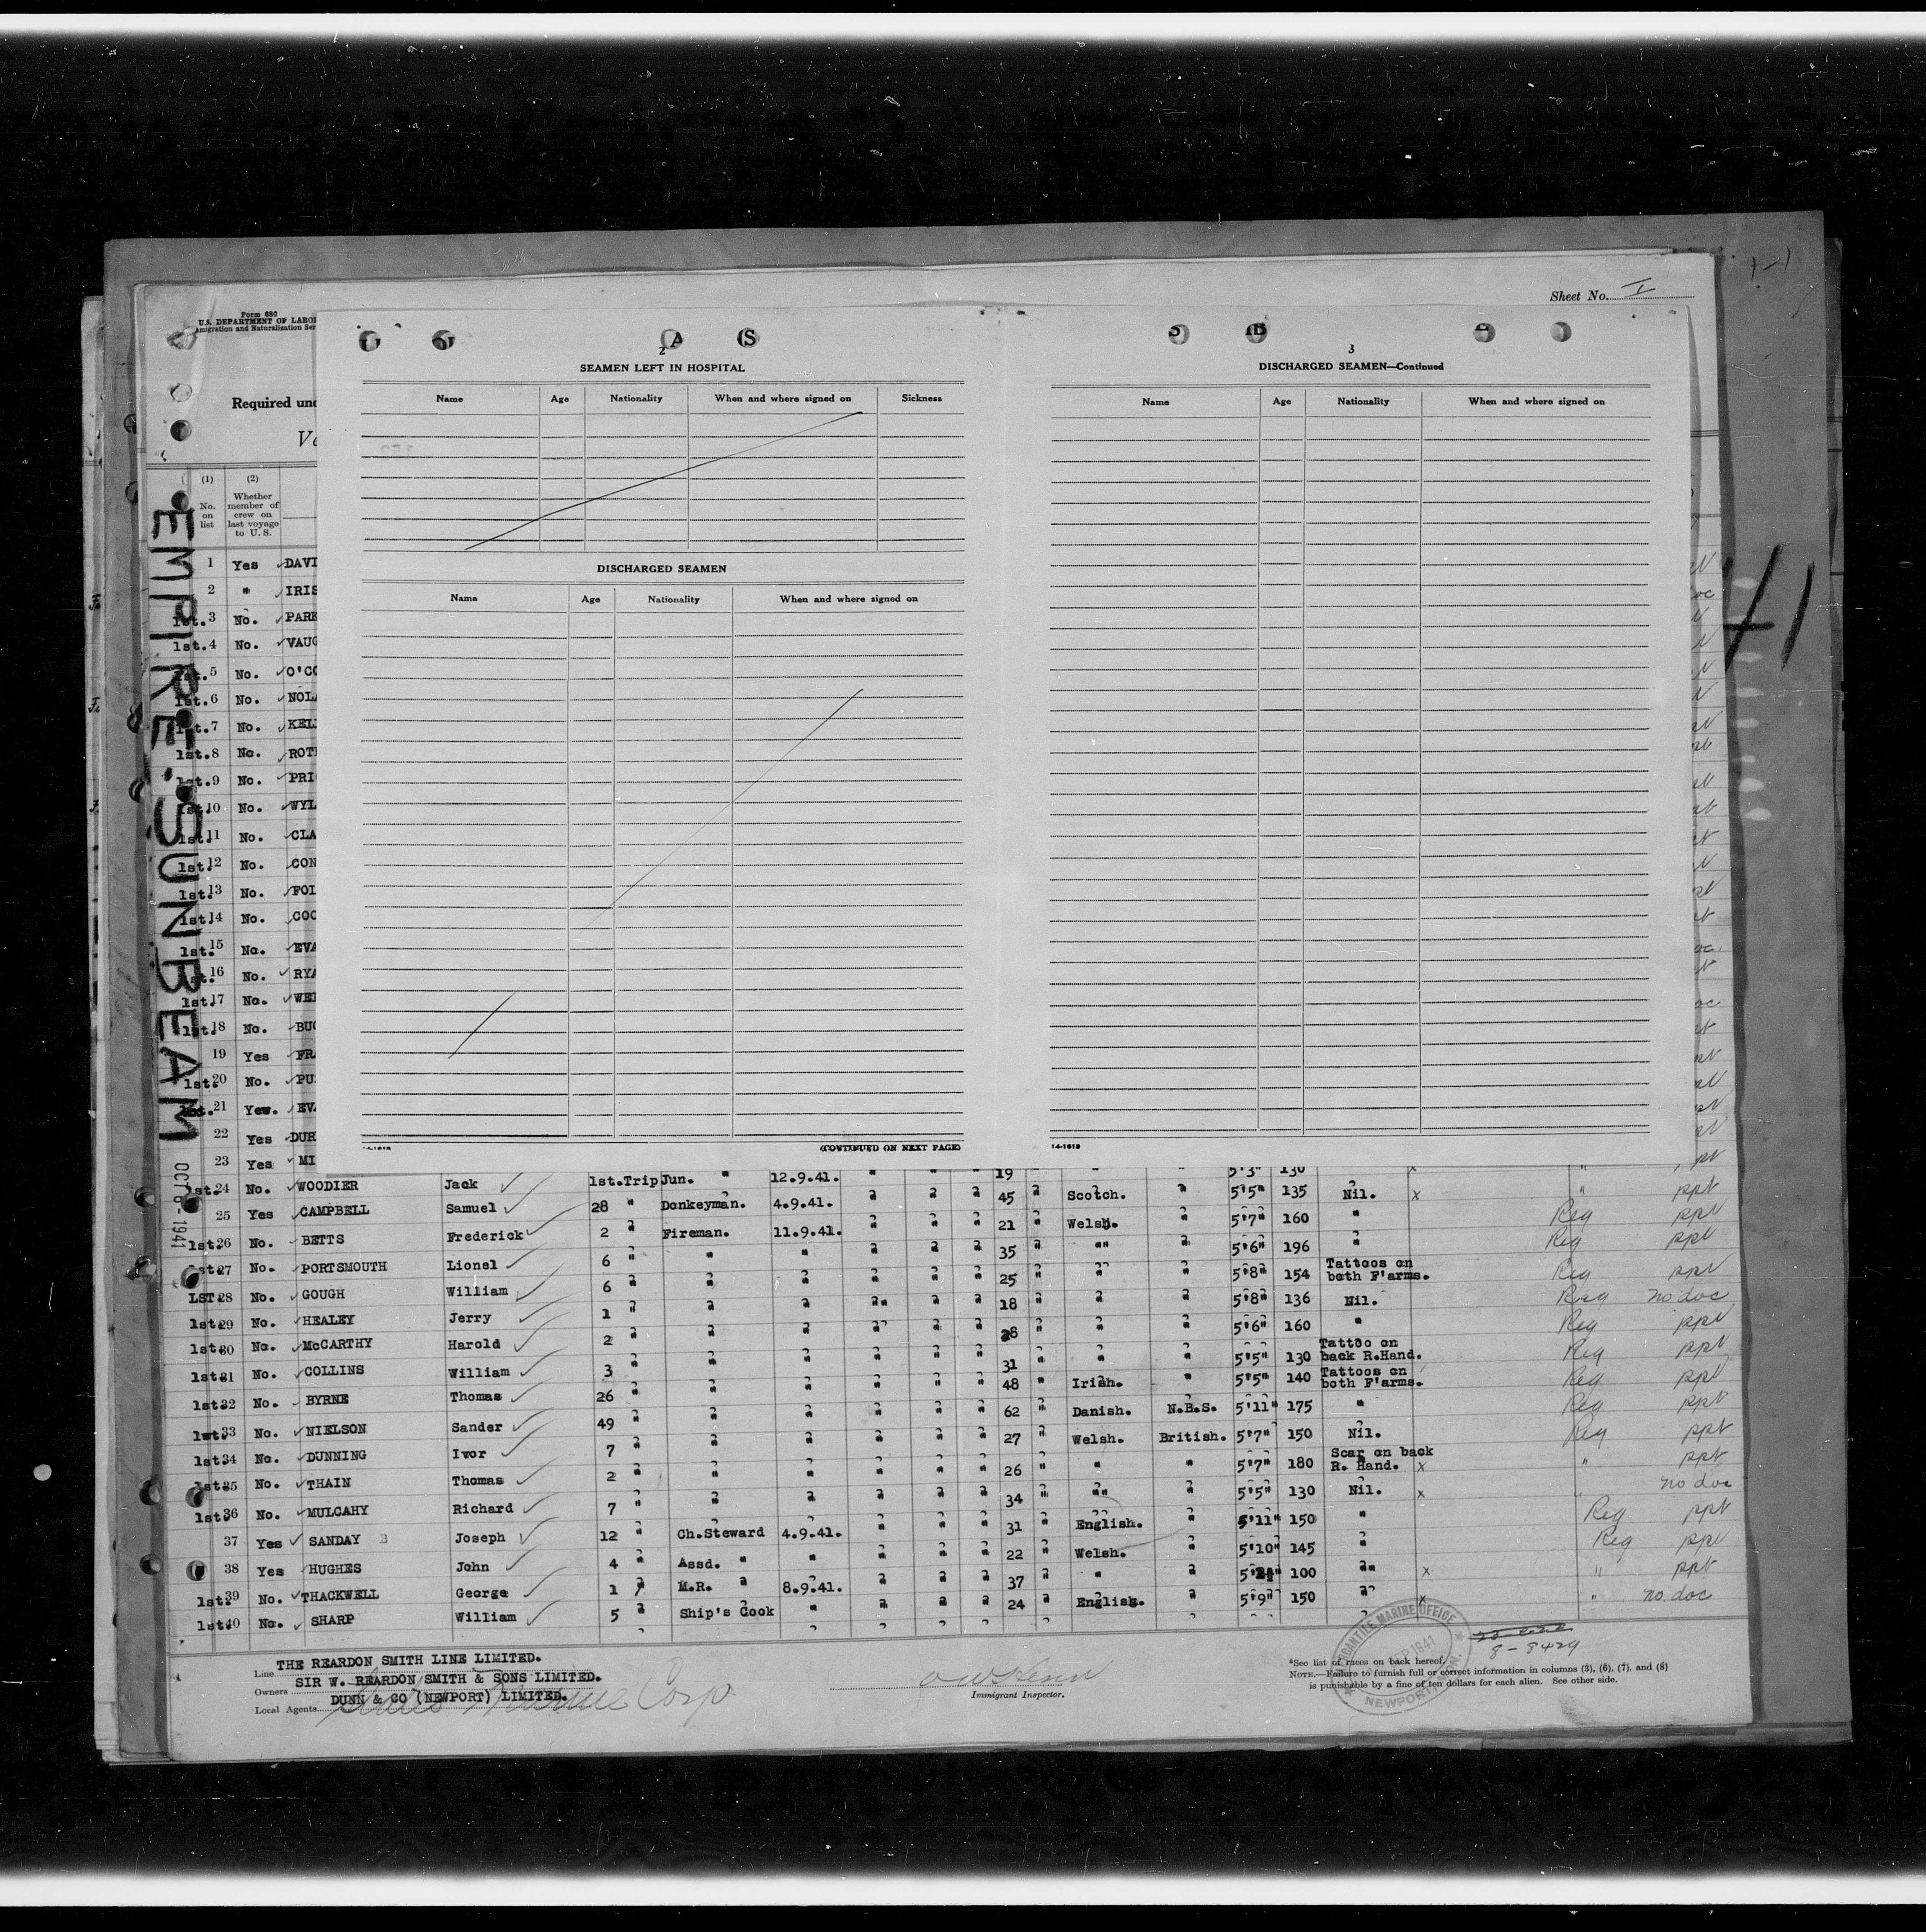 Sheet No. I
Form 680
U.S. DEPARTMENT OF LABO
migration and Naturalization Ser
Required und
Ve
2
SEAMEN LEFT IN HOSPITAL
Name Age Nationality When and where signed on Sickness
DISCHARGED SEAMEN
Name Age Nationality When and where signed on
(CONTINUED ON NEXT PAGE)
3
DISCHARGED SEAMEN—Continued
Name Age Nationality When and where signed on
14-1613
41
EMPIRE SUNBEAM
OCT 8-1941
(1) (2)
No. on list
Whether member of crew on last voyage to U.S.
1 Yes DAVI
2 " IRIS
1st. 3 No. PARK
1st. 4 No. VAUG
1st. 5 No. O'CO
1st. 6 No. NOLA
1st. 7 No. KELL
1st. 8 No. ROTH
1st. 9 No. PRI
1st. 10 No. WYL
1st. 11 No. CLA
1st. 12 No. CON
1st. 13 No. FOL
1st. 14 No. COO
1st. 15 No. EVA
1st. 16 No. RYA
1st. 17 No. WE
1st. 18 No. BU
19 Yes FRA
1st. 20 No. PU
21 Yes. EV
22 Yes DUR
23 Yes MI
19 " " 5'3" 130 x " ppt
1st. 24 No. WOODIER Jack 1st.Trip Jun. " 12.9.41. " " " 45 " Scotch. " 5'5" 135 Nil. x " ppt
25 Yes CAMPBELL Samuel 28 " Donkeyman. 4.9.41. " " " 21 " Welsh. " 5'7" 160 " Reg ppt
1st. 26 No. BETTS Frederick 2 " Fireman. 11.9.41. " " " 35 " " " 5'6" 196 " Reg ppt
1st. 27 No. PORTSMOUTH Lionel 6 " " " " " " 25 " " " 5'8" 154 Tattoos on both F'arms. Reg ppt
1st. 28 No. GOUGH William 6 " " " " " " 18 " " " 5'8" 136 Nil. Reg no doc
1st. 29 No. HEALEY Jerry 1 " " " " " " 28 " " " 5'6" 160 " Reg ppt
1st. 30 No. McCARTHY Harold 2 " " " " " " 31 " " " 5'5" 130 Tattoo on back R.Hand. Reg ppt
1st. 31 No. COLLINS William 3 " " " " " " 48 " Irish. " 5'5" 140 Tattoos on both F'arms. Reg ppt
1st. 32 No. BYRNE Thomas 26 " " " " " " 62 " Danish. N.B.S. 5'11" 175 " Reg ppt
1st. 33 No. NIELSON Sander 49 " " " " " " 27 " Welsh. British. 5'7" 150 Nil. Reg ppt
1st. 34 No. DUNNING Ivor 7 " " " " " " 26 " " " 5'7" 180 Scar on back R. Hand. x " ppt
1st. 35 No. THAIN Thomas 2 " " " " " " 34 " " " 5'5" 130 Nil. x " no doc
1st. 36 No. MULCAHY Richard 7 " " " " " " 31 " English. " 5'11" 150 " Reg ppt
37 Yes SANDAY B Joseph 12 " Ch.Steward 4.9.41. " " " 22 " Welsh. " 5'10" 145 " Reg ppt
38 Yes HUGHES John 4 " Assd. " " " " " 37 " " " 100 " x " ppt
1st. 39 No. THACKWELL George 1 " M.R. " 8.9.41. " " " 24 " English. " 5'9" 150 " x " no doc
1st. 40 No. SHARP William 5 " Ship's Cook "
Line THE REARDON SMITH LINE LIMITED.
Owners SIR W. REARDON SMITH & SONS LIMITED.
Local Agents DUNN & CO (NEWPORT) LIMITED. Corp
Immigrant Inspector.
MERCANTILE MARINE OFFICE
1941
NEWPORT, MON.
8-8429
*See list of races on back hereof.
NOTE.—Failure to furnish full or correct information in columns (3), (6), (7), and (8)
is punishable by a fine of ten dollars for each alien. See other side.